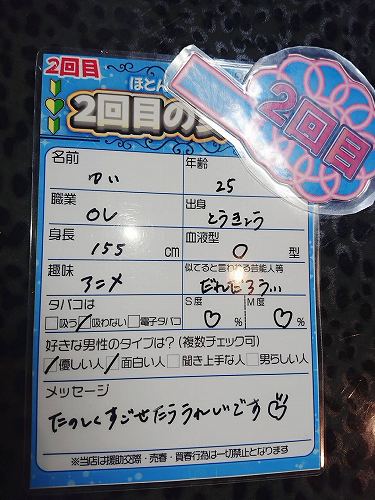 2回目
ほとん
2回目の
2回目
名前 ゆい 年齢 25
職業 OL 出身 とうきょう
身長 155 cm 血液型 O 型
趣味 アニメ 似てると言われる芸能人等 だれだろう...
タバコは □吸う ☑吸わない □電子タバコ S度 ♡ % M度 ♡ %
好きな男性のタイプは?(複数チェック可)
☑優しい人 ☑面白い人 □聞き上手な人 □男らしい人
メッセージ
たのしくすごせたらうれしいです♡
※当店は援助交際・売春・買春行為は一切禁止となります